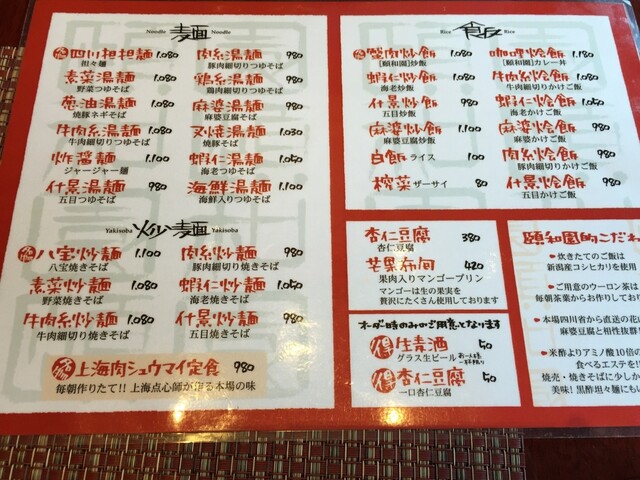 Noodle 麺 Noodle
名物 四川担担麺 1.080
担々麺
素菜湯麺 1.080
野菜つゆそば
葱油湯麺 1.080
焼豚ネギそば
牛肉糸湯麺 1.080
牛肉細切りつゆそば
炸醤麺 1.100
ジャージャー麺
什景湯麺 980
五目つゆそば
肉糸湯麺 980
豚肉細切りつゆそば
鶏糸湯麺 980
鶏肉細切りつゆそば
麻婆湯麺 980
麻婆豆腐そば
叉焼湯麺 1.030
焼豚そば
蝦仁湯麺 1.050
海老つゆそば
海鮮湯麺 1.180
海鮮入りつゆそば
Yakisoba 炒麺 Yakisoba
八宝炒麺 1.100
八宝焼きそば
素菜炒麺 1.080
野菜焼きそば
牛肉糸炒麺 1.080
牛肉細切り焼きそば
肉糸炒麺 980
豚肉細切り焼きそば
蝦仁炒麺 1.050
海老焼きそば
什景炒麺 980
五目焼きそば
名物 上海肉シュウマイ定食 980
毎朝作りたて!! 上海点心師が作る本場の味
Rice 食飯 Rice
名物 蟹肉炒飯 1.080
[頤和園]炒飯
蝦仁炒飯 1.050
海老炒飯
什景炒飯 980
五目炒飯
麻婆炒飯 1.100
麻婆豆腐炒飯
白飯 ライス 100
搾菜 ザーサイ 80
咖喱烩飯 1.180
[頤和園]カレー丼
牛肉糸烩飯 1.080
牛肉細切りかけご飯
蝦仁烩飯 1.050
海老かけご飯
麻婆烩飯 980
麻婆豆腐かけご飯
肉糸烩飯 980
豚肉細切りかけご飯
什景烩飯 980
五目かけご飯
杏仁豆腐 380
杏仁豆腐
芒果布甸 420
果肉入りマンゴープリン
マンゴーは生の果実を
贅沢にたくさん使用しております
オーダー時のみのご用意となります
得 生素酒 50
グラス生ビール お一人様一杯限り
得 杏仁豆腐 50
一口杏仁豆腐
頤和園的こだわ
炊きたてのご飯は
新潟産コシヒカリを使用
ご用意のウーロン茶は
毎朝茶葉からお作りして
本場四川省から直送の花
麻婆豆腐と相性抜群
米酢よりアミノ酸10倍の
食べるエステを!!
焼売・焼きそばに少しか
美味! 黒酢坦々麺にも